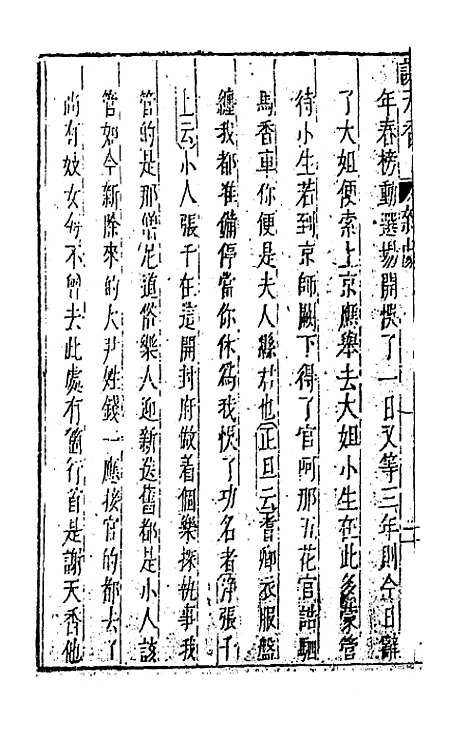 謝天香　雜劇　二
年春榜動選場開悮了一日又等三年則今日辭
了大姐便索上京應舉去大姐小生在此多蒙管
待小生若到京師闕下得了官呵那五花官誥駟
馬香車你便是夫人縣君也正旦云耆卿衣服盤
纏我都准備停當你休為我悮了功名者淨張千
上云小人張千在這開封府做着個樂探執事我
管的是那僧尼道俗樂人迎新送舊都是小人該
管如今新除來的大尹姓錢一應接官的都去了
尚有妓女每不曾去此處有箇行首是謝天香他